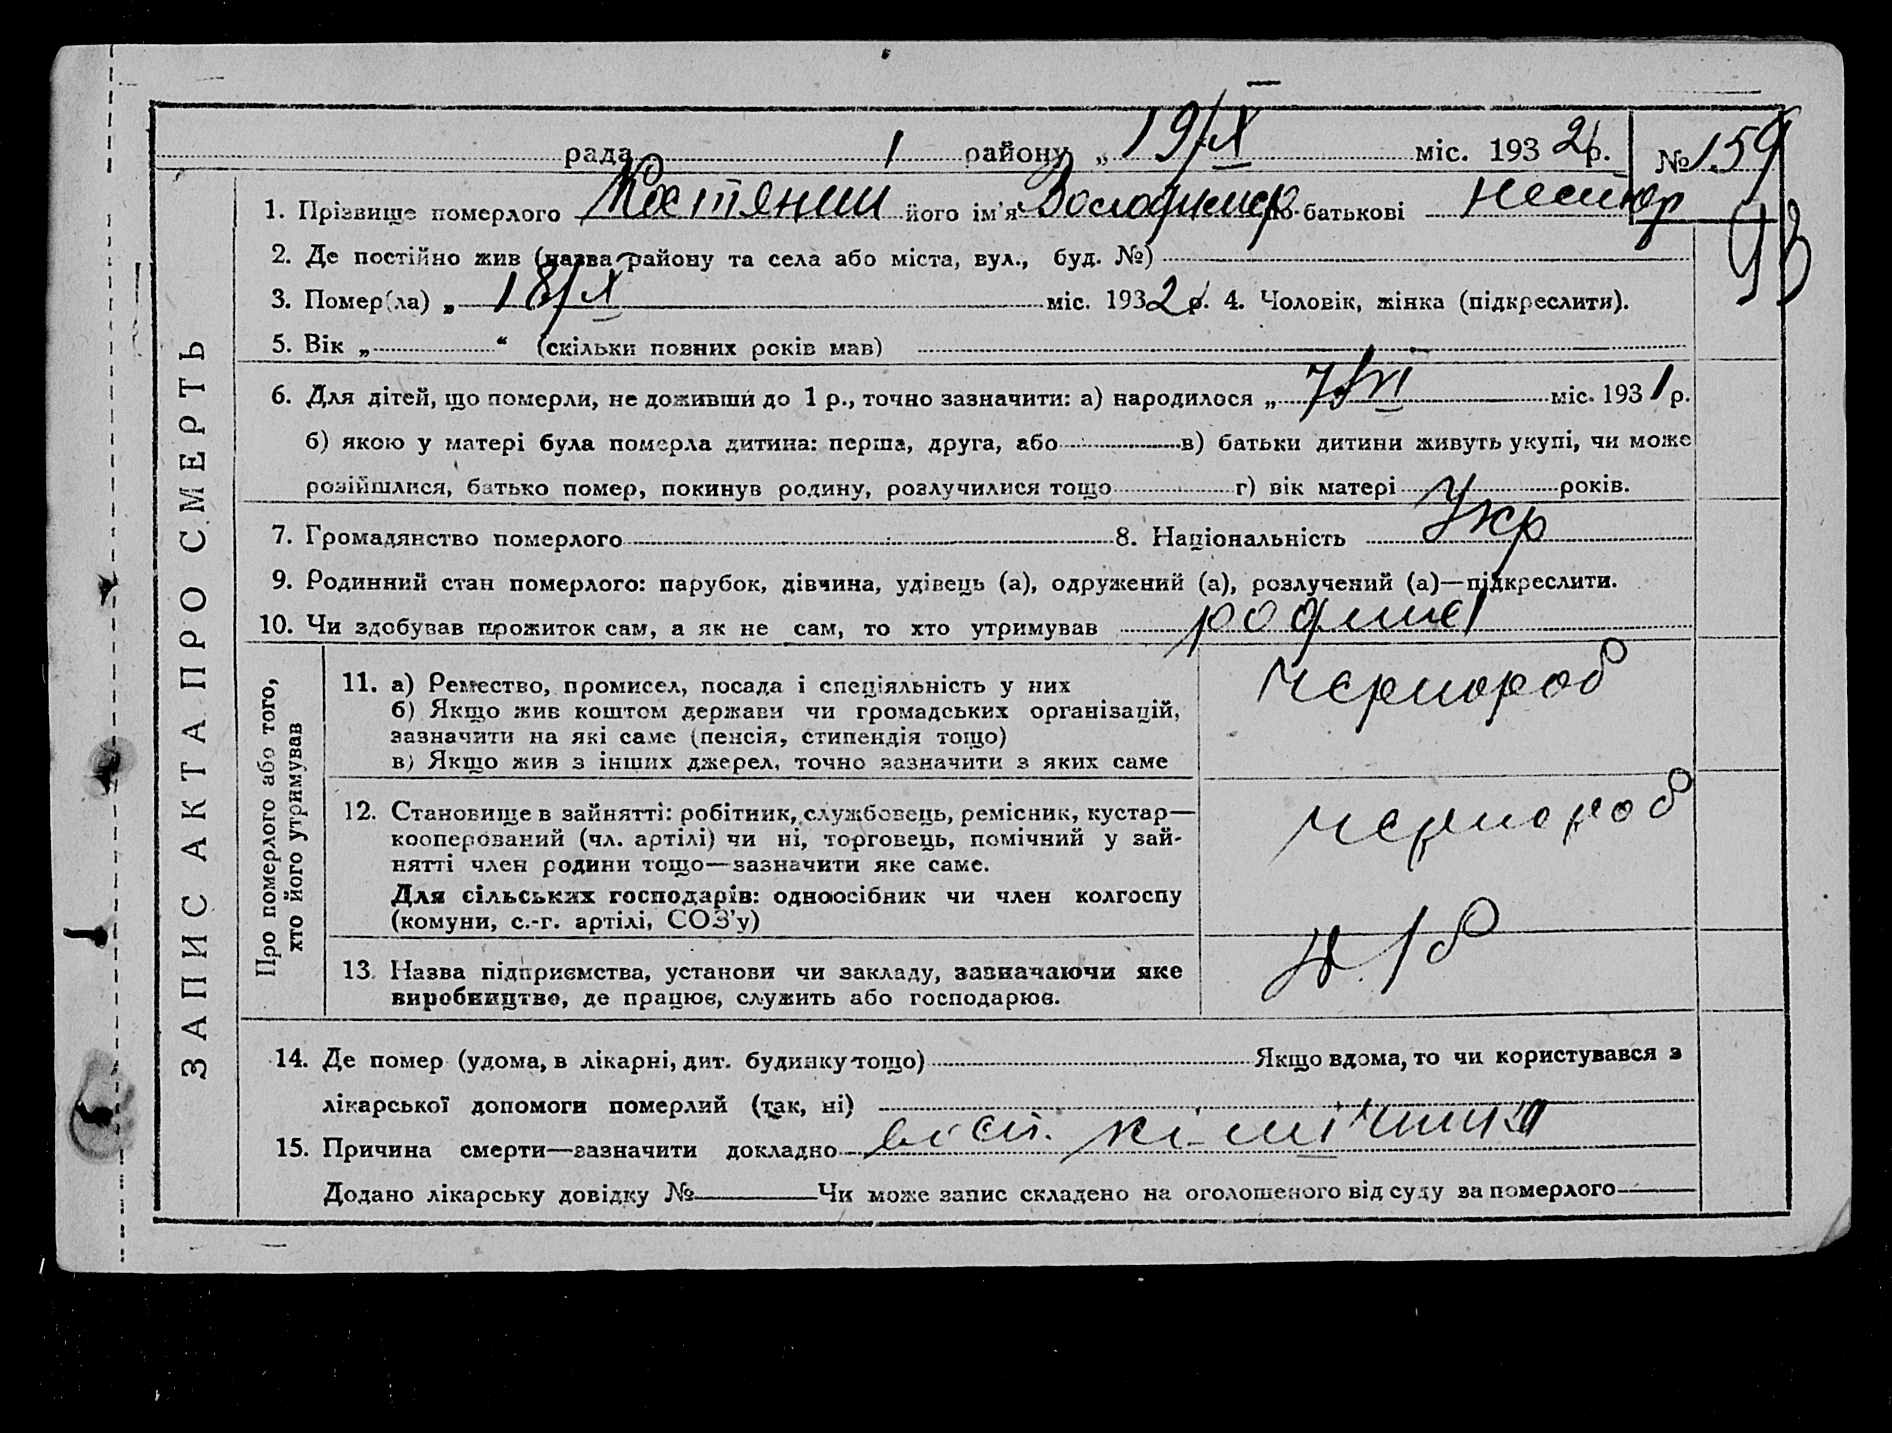 рада 1 району „ 19/X міс. 1932 р. № 159
1. Прізвище померлого його ім'я Володимер по-батькові Нестор
93
2. Де постійно жив (назва району та села або міста, вул., буд. №)
3. Помер(ла) „ 18/X міс. 1932 р. 4. Чоловік, жінка (підкреслити).
5. Вік „ “ (скільки повних років мав)
6. Для дітей, що померли, не доживши до 1 р., точно зазначити: а) народилося „ 7/VI міс. 1931 р.
б) якою у матері була померла дитина: перша, друга, або в) батьки дитини живуть укупі, чи може
розійшлися, батько помер, покинув родину, розлучилися тощо г) вік матері років.
7. Громадянство померлого 8. Національність Укр
9. Родинний стан померлого: парубок, дівчина, удівець (а), одружений (а), розлучений (а)—підкреслити.
10. Чи здобував прожиток сам, а як не сам, то хто утримував
ЗАПИС АКТА ПРО СМЕРТЬ
Про померлого або того,
хто його утримував
11. а) Ремество, промисел, посада і спеціяльність у них
б) Якщо жив коштом держави чи громадських організацій,
зазначити на які саме (пенсія, стипендія тощо)
в) Якщо жив з інших джерел, точно зазначити з яких саме
чернороб
12. Становище в зайнятті: робітник, службовець, ремісник, кустар—
кооперований (чл. артілі) чи ні, торговець, помічний у зай-
нятті член родини тощо—зазначити яке саме.
Для сільських господарів: одноосібник чи член колгоспу
(комуни, с.-г. артілі, СОЗ'у)
чернороб
13. Назва підприємства, установи чи закладу, зазначаючи яке
виробництво, де працює, служить або господарює.
14. Де помер (удома, в лікарні, дит. будинку тощо) Якщо вдома, то чи користувався з
лікарської допомоги померлий (так, ні)
15. Причина смерти—зазначити докладно
Додано лікарську довідку № Чи може запис складено на оголошеного від суду за померлого